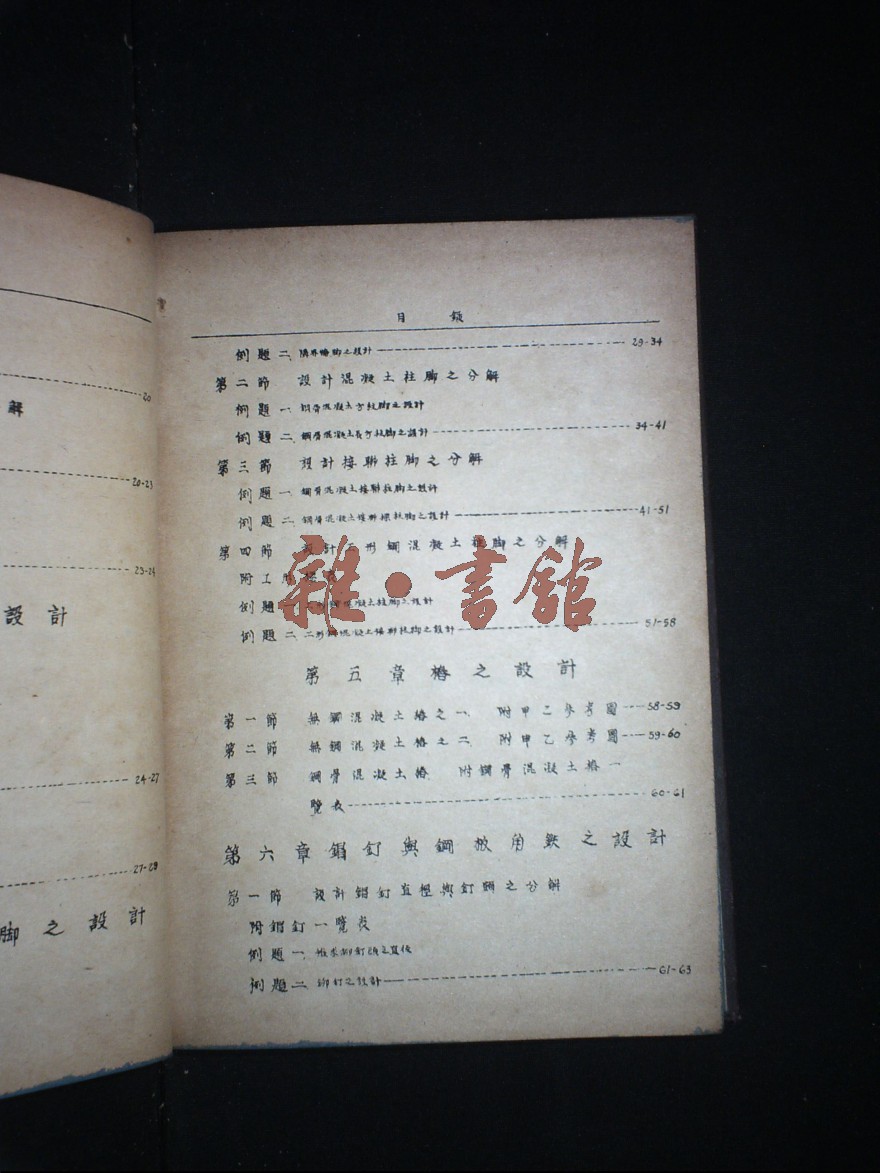 20
解
20-23
23-24
設計
24-27
27-29
脚之設計
目錄
例題二、隔界牆脚之設計 29-34
第二節 設計混凝土柱脚之分解
例題一、鋼骨混凝土方柱脚之設計
例題二、鋼骨混凝土長方柱脚之設計 34-41
第三節 設計接聯柱脚之分解
例題一、鋼骨混凝土接聯柱脚之設計
例題二、鋼骨混凝土接聯 柱脚之設計 41-51
第四節 設計 形鋼混凝土 脚之分解
附工
例題 混凝土柱脚之設計
例題二、 形鋼混凝土 聯柱脚之設計 51-58
雜·書館
第五章樁之設計
第一節 無鋼混凝土樁之一 附甲乙參考圖 58-59
第二節 無鋼混凝土樁之二 附甲乙參考圖 59-60
第三節 鋼骨混凝土樁 附鋼骨混凝土樁一
覽表 60-61
第六章鎇釘與鋼板角鉄之設計
第一節 設計鎇釘直徑與釘頭之分解
附鎇釘一覽表
例題一、 鉚釘頭之直徑
例題二、鉚釘之設計 61-63